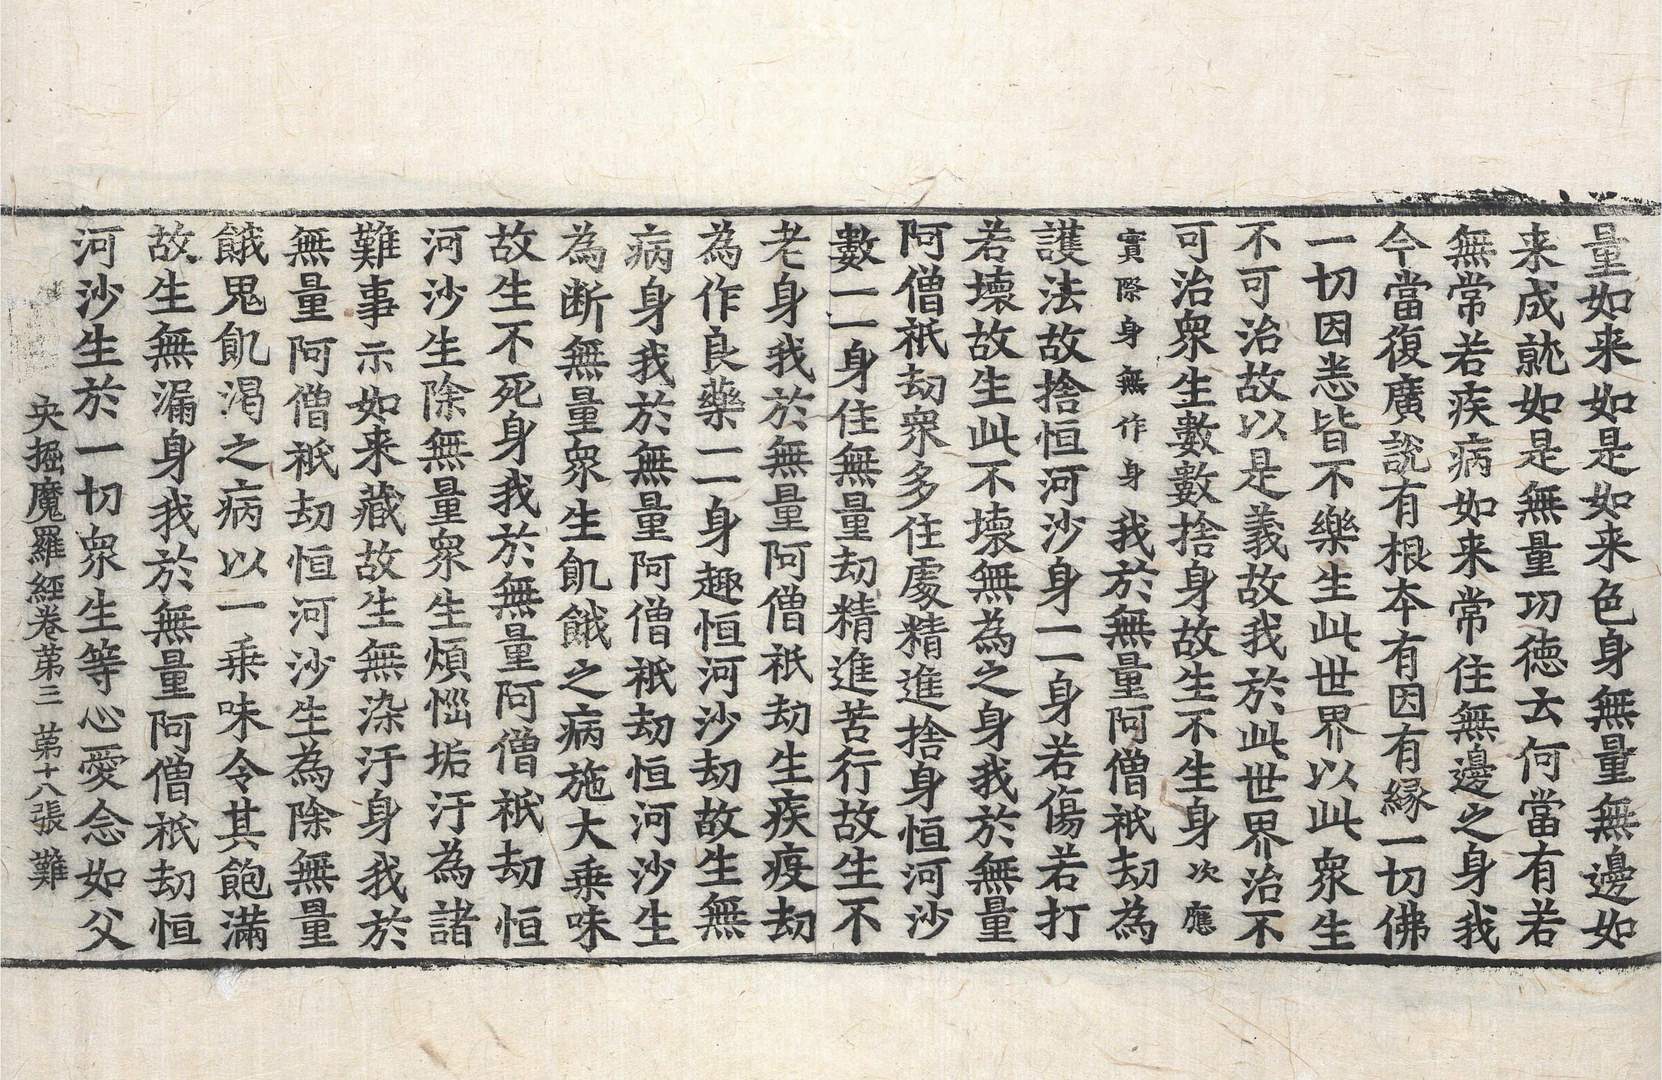 量如来如是如来色身無量無邊如
来成就如是無量功徳云何當有若
無常若疾病如来常住無邊之身我
今當復廣說有根本有因有縁一切佛
一切因悉皆不樂生此世界以此衆生
不可治故以是義故我於此世界治不
可治衆生數數捨身故生不生身次應
實際身無作身我於無量阿僧祇劫為
護法故捨恒河沙身一一身若傷若打
若壞故生此不壞無為之身我於無量
阿僧祇劫衆多住處精進捨身恒河沙
數一一身住無量劫精進苦行故生不
老身我於無量阿僧祇劫生疾疫劫
為作良藥一一身趣恒河沙劫故生無
病身我於無量阿僧祇劫恒河沙生
為断無量衆生飢餓之病施大乗味
故生不死身我於無量阿僧祇劫恒
河沙生除無量衆生煩惱垢汙為諸
難事示如来藏故生無染汙身我於
無量阿僧祇劫恒河沙生為除無量
餓鬼飢渴之病以一乗味令其飽滿
故生無漏身我於無量阿僧祇劫恒
河沙生於一切衆生等心愛念如父
央掘魔羅經卷第三 第十八張 難